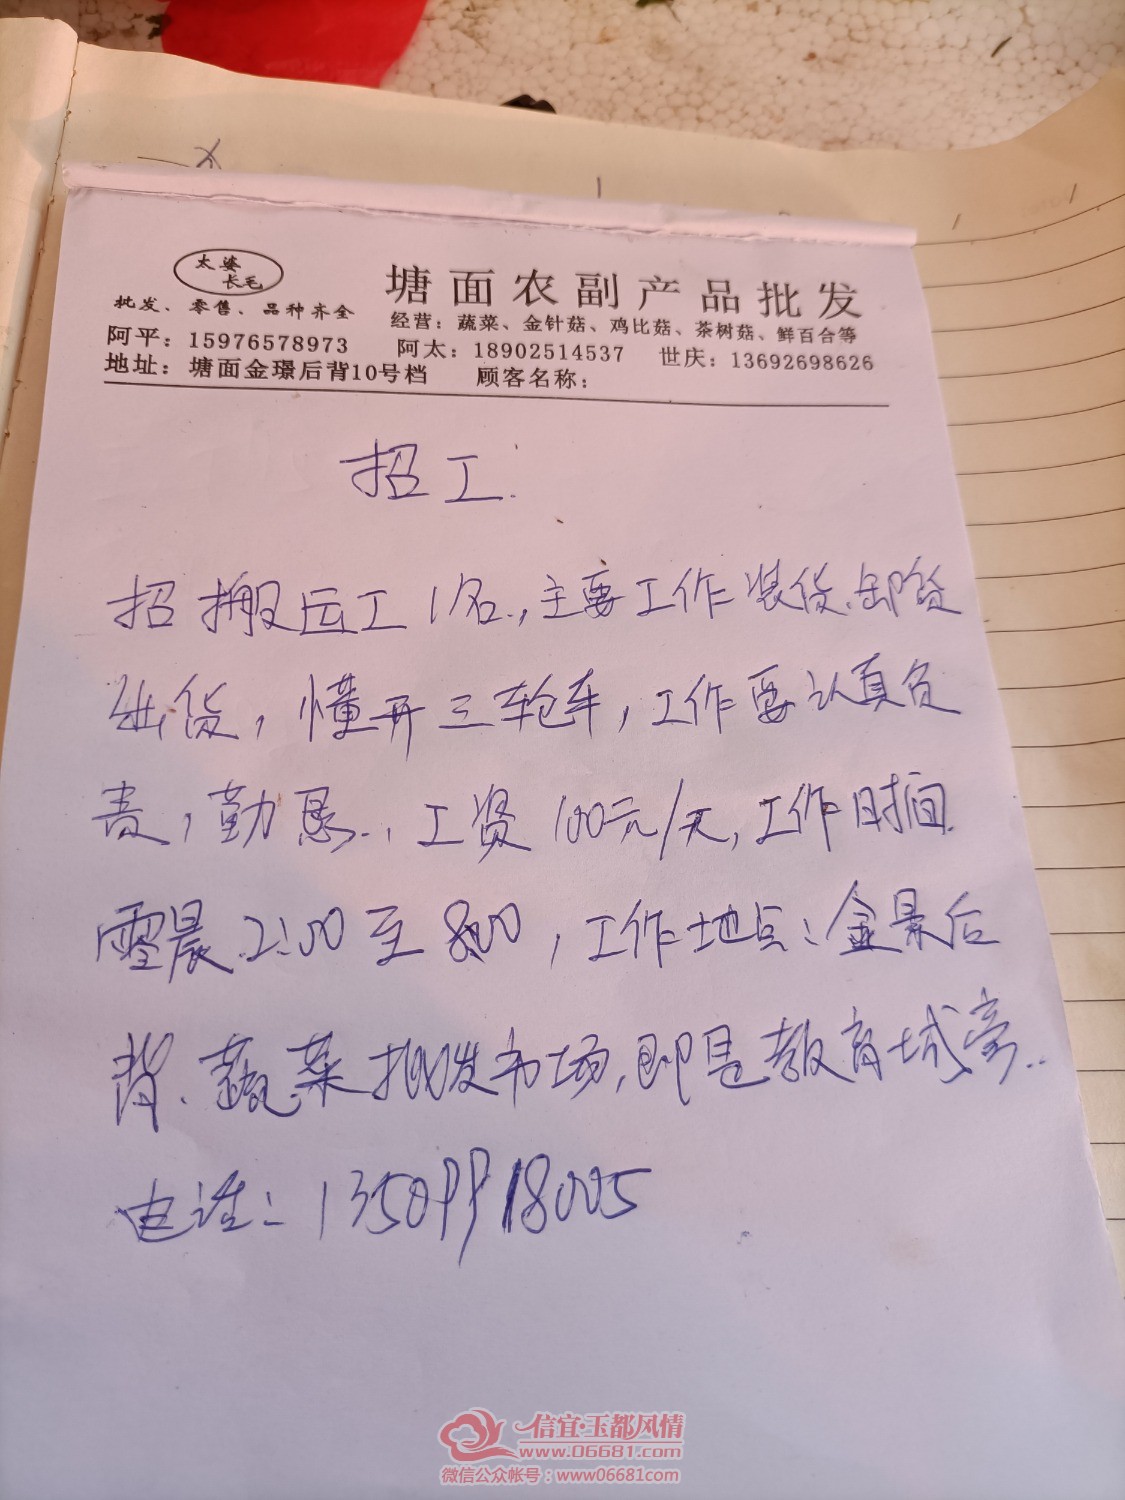 太婆
长毛
塘面农副产品批发
批发、零售、品种齐全
经营：蔬菜、金针菇、鸡比菇、茶树菇、鲜百合等
阿平：15976578973 阿太：18902514537 世庆：13692698626
地址：塘面金璟后背10号档 顾客名称：
招工.
招搬运工1名.,主要工作装货.卸货
出货，懂开三轮车，工作要认真负
责，勤恳.，工资100元/天，工作时间
零晨2:00至8:00，工作地点：金景后
背.蔬菜批发市场，即是教育城旁..
电话：13509918005
信宜·玉都风情
www.06681.com
微信公众帐号：www06681com